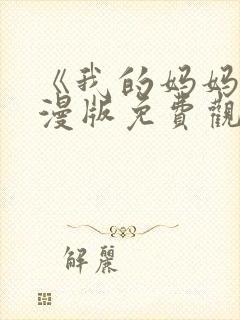 《我的妈妈
漫版免費觀
解麗